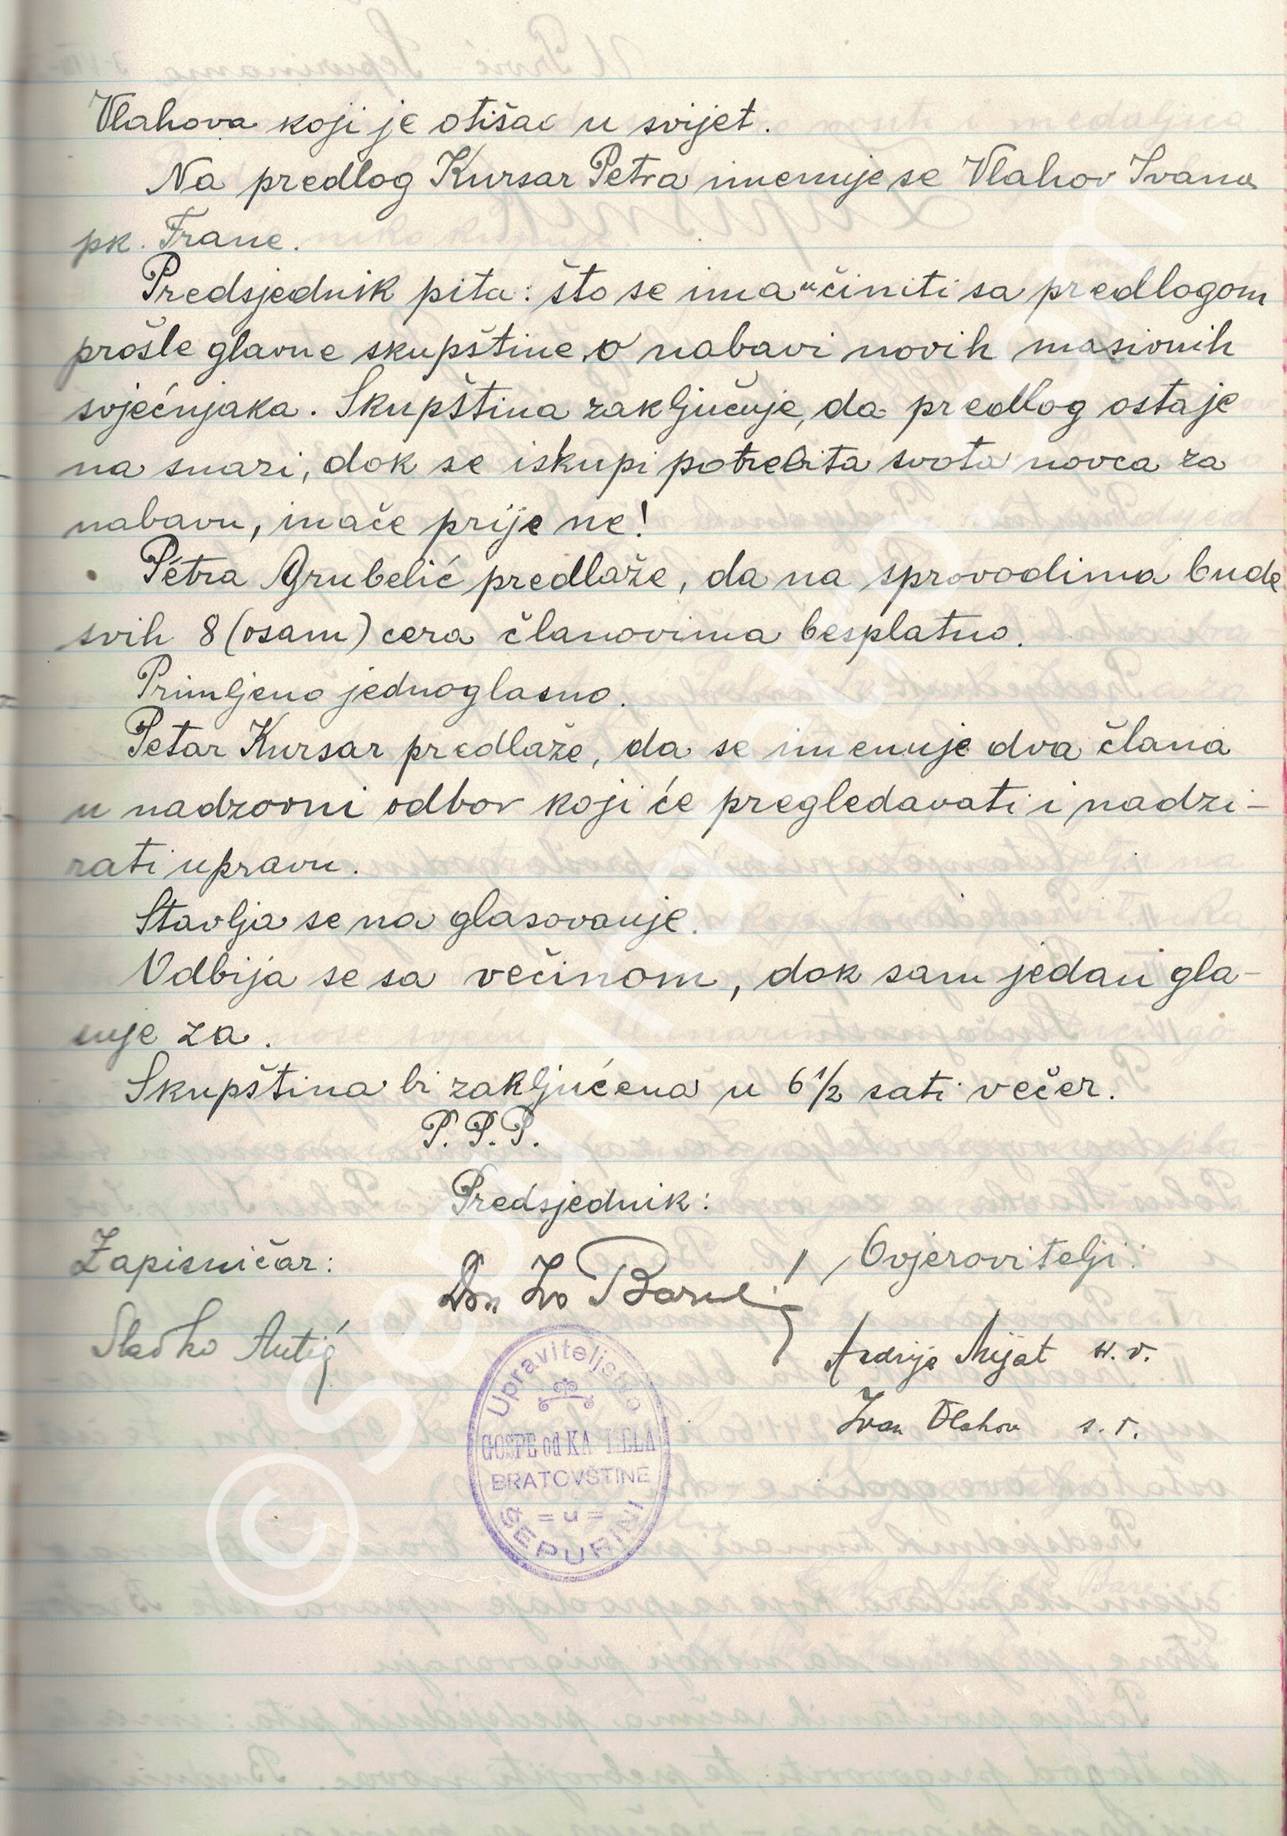 Vlahova koji je otišao u svijet.
Na predlog Kursar Petra imenuje se Vlahov Ivana
pk. Frane.
Predsjednik pita: što se ima učiniti sa predlogom
prošle glavne skupštine o nabavi novih masivnih
svjećnjaka. Skupština zaključuje, da predlog ostaje
na snazi, dok se iskupi potrebita svota novca za
nabavu, inače prije ne!
Petra Grubelić predlaže, da na sprovodima bude
svih 8 (osam) cera članovima besplatno.
Primljeno jednoglasno.
Petar Kursar predlaže, da se imenuje dva člana
u nadzorni odbor koji će pregledavati i nadzi-
rati upravu.
Stavlja se na glasovanje.
Odbija se sa većinom, dok sam jedan gla-
suje za.
Skupština bi zaključena u 6 1/2 sati večer.
P.P.P.
Predsjednik:
Zapisničar:
Ovjerovitelji:
Don Ivo
Slavko Antić
Andrija Mijat s.r.
Ivan Vlahov s.r.
Upraviteljstvo
GOSPE od KAŠTELA
BRATOVŠTINE
= u =
ŠEPURINI